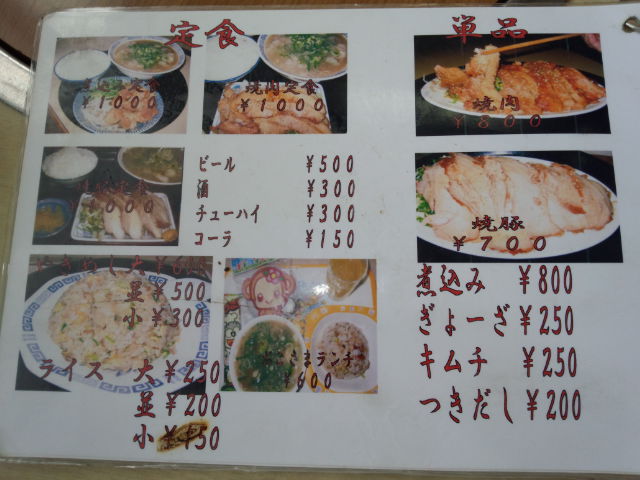 定食
定食
￥1000
焼肉定食
￥1000
定食
ビール ￥500
酒 ￥300
チューハイ ￥300
コーラ ￥150
めし 大￥600
並￥500
小￥300
ライス 大￥250
並￥200
小￥150
さまランチ
￥600
単品
焼肉
￥800
焼豚
￥700
煮込み ￥800
ぎょーざ ￥250
キムチ ￥250
つきだし ￥200